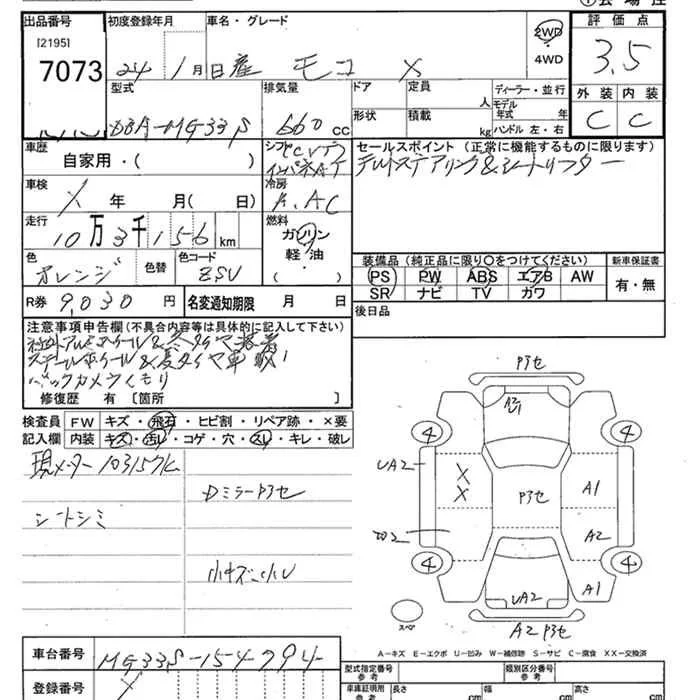 出品番号 初度登録年月 車名・グレード 評価点
[2195]
7073 24 1月 日産 モコ X 2WD・4WD 3.5
型式 排気量 ドア 定員 人 ディーラー・並行 外装 内装
DBA-MG33S 660cc 形状 積載 kg モデル年式 年 ハンドル 左・右 C C
車歴 自家用・( ) シフト セールスポイント (正常に機能するものに限ります)
インパネAT
車検 X 年 月( 日) 冷房 A.AC
走行 10万3千156km 燃料 ガソリン・軽油・( )
色 オレンジ 色替 色コード
装備品(純正品に限り○をつけてください) 新車保証書
PS PW ABS エアB AW 有・無
SR ナビ TV ガワ
R券 9,030円 名変通知期限 月 日 後日品
注意事項申告欄(不具合内容等は具体的に記入して下さい)
社外アルミホイール&冬タイヤ装着
スチールホイール&夏タイヤ車載
バックカメラくもり
修復歴 有 [箇所 ]
検査員記入欄 FW キズ・飛石・ヒビ割・リペア跡・×要
内装 キズ・汚レ・コゲ・穴・スレ・キレ・破レ
現メーター103157K
Dミラー
シートシミ
小キズ 小凹
4 A1 4
UA2 X A1
X
A2
4 4
UA2 A1
スペア A2
A-キズ E-エクボ U-凹み W-補修跡 S-サビ C-腐食 XX-交換済
車台番号 MG33S-154794
登録番号 X
型式指定番号 参考 類別区分番号 参考
車庫証明用 参考 長さ cm 幅 cm 高さ cm